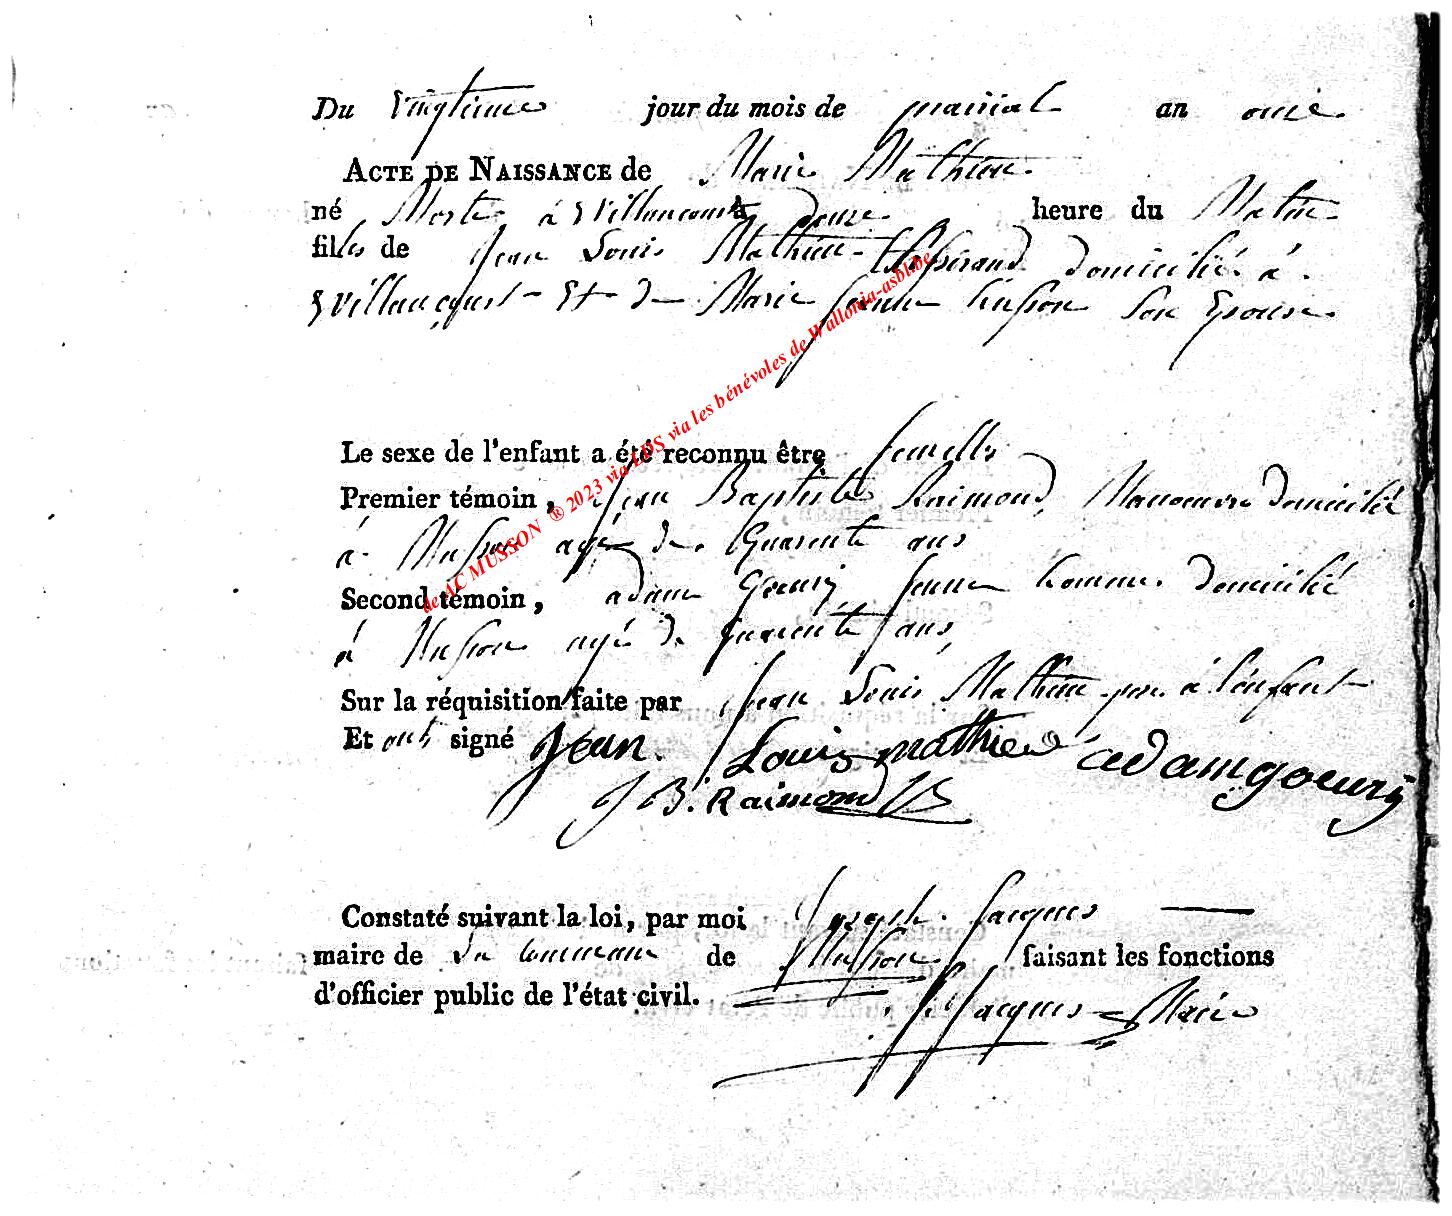 Du vingtieme jour du mois de prairial an onze.
ACTE DE NAISSANCE de Marie Mathieu.
né Morte à Willancourt à deuze heure du Matin
filles de Jean Louis Mathieu domicilié à
Willancourt Et de Marie jeanne husson Son Epouse.
Le sexe de l'enfant a été reconnu être femelle
Premier témoin, Jean Baptiste Raimond, Manoeuvre domicilié
à Musson agé de Quarente ans
Second témoin, adam Goeury jeune homme domicilié
à Musson agé de quarente ans
Sur la réquisition faite par Jean Louis Mathieu pere à l'enfant
Et onts signé Jean Louis mathieu adam goeury
J B. Raimond
Constaté suivant la loi, par moi Joseph Jacques
maire de la commune de Musson faisant les fonctions
d'officier public de l'état civil.
J Jacques Maire
de AC MUSSON ® 2023 via LDS via les bénévoles de Wallonia-asbl.be